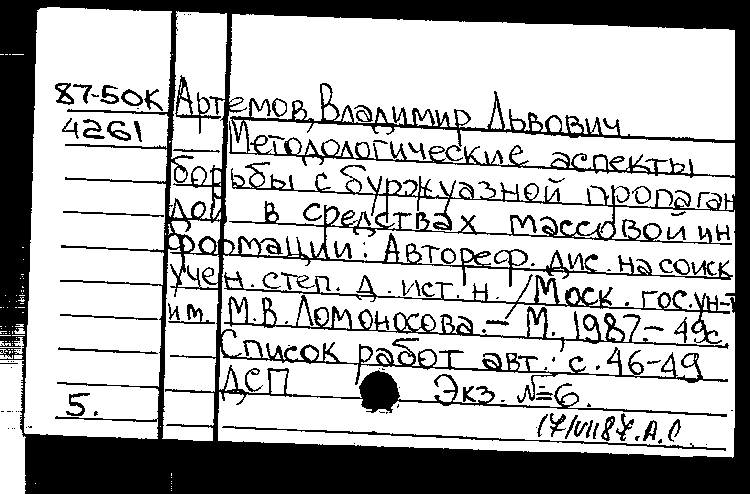 87-50К Артемов, Владимир Львович
4261 Методологические аспекты
борьбы с буржуазной пропаган
дой в средствах массовой ин
формации: Автореф. дис. на соиск
учен. степ. д. ист. н. /Моск. гос. ун-т
им. М.В. Ломоносова. – М., 1987. – 49с.
Список работ авт.: с. 46-49
ДСП Экз. №6.
5.
17/VII87. А.С.